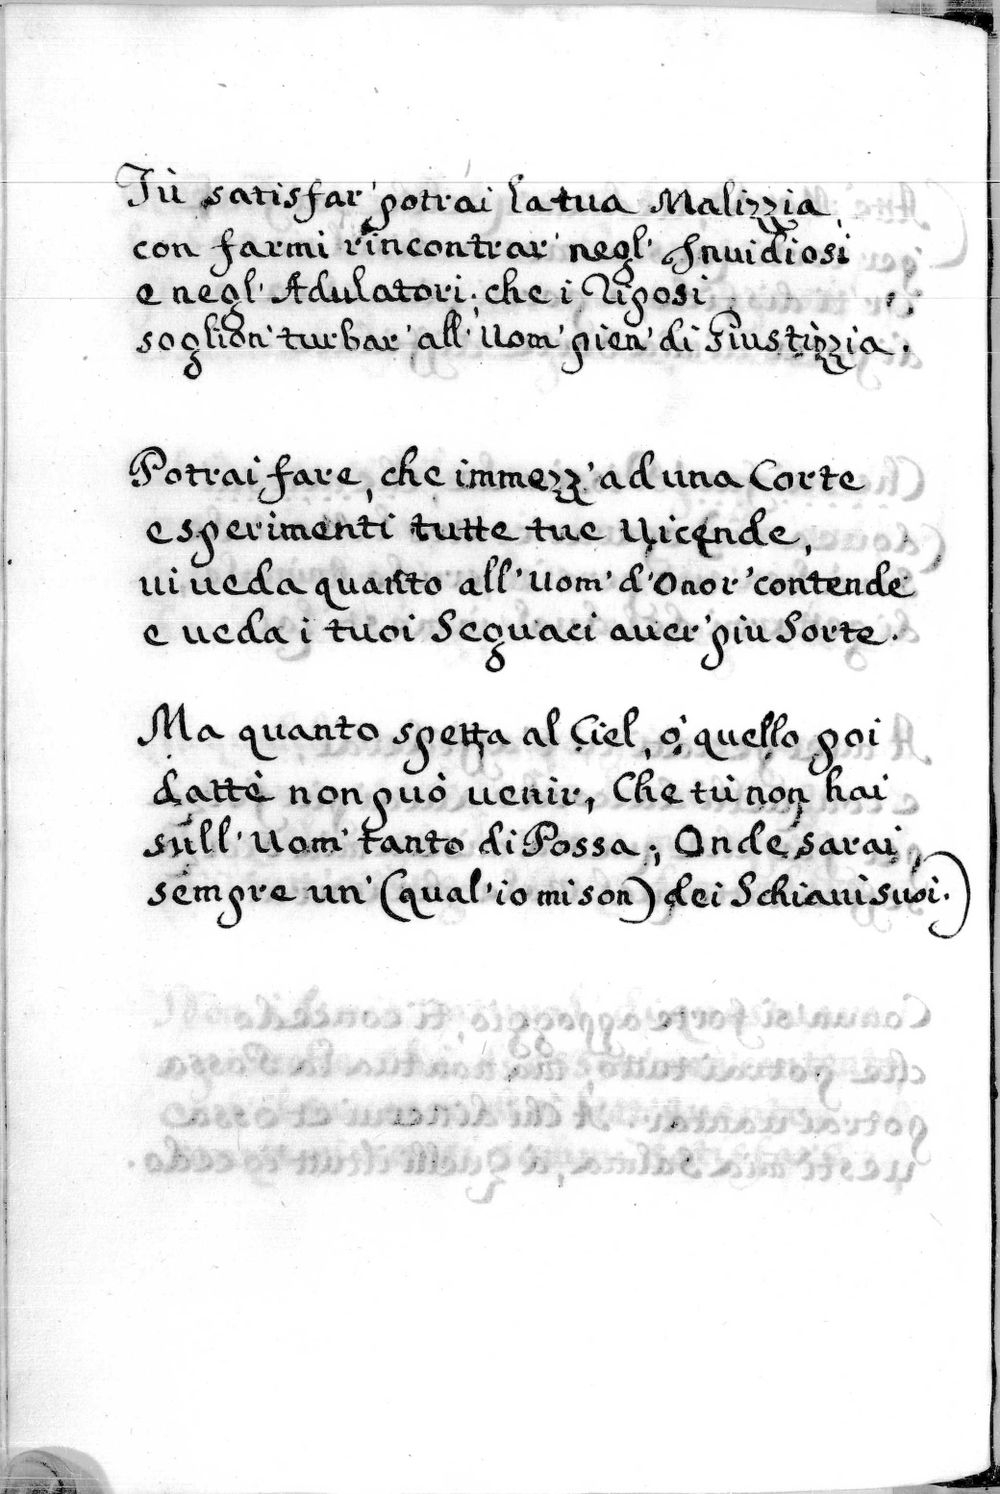 Tù satisfar' potrai la tua Malizzia,
con farmi rincontrar' negl' Invidiosi
e negl' Adulatori; che i Riposi
soglion' turbar' all' Uom' pien' di Giustizzia.
Potrai fare, che immezz' ad una Corte
esperimenti tutte tue Vicende,
vi veda quanto all' Uom' d'Onor' contende
e veda i tuoi Seguaci aver' piu Sorte.
Ma quanto spetta al Ciel, ò quello poi
dattè non può venir, Che tù non hai
sull' Uom' tanto di Possa; Onde sarai,
sempre un' (qual' io mi son) dei Schiavi suoi.)